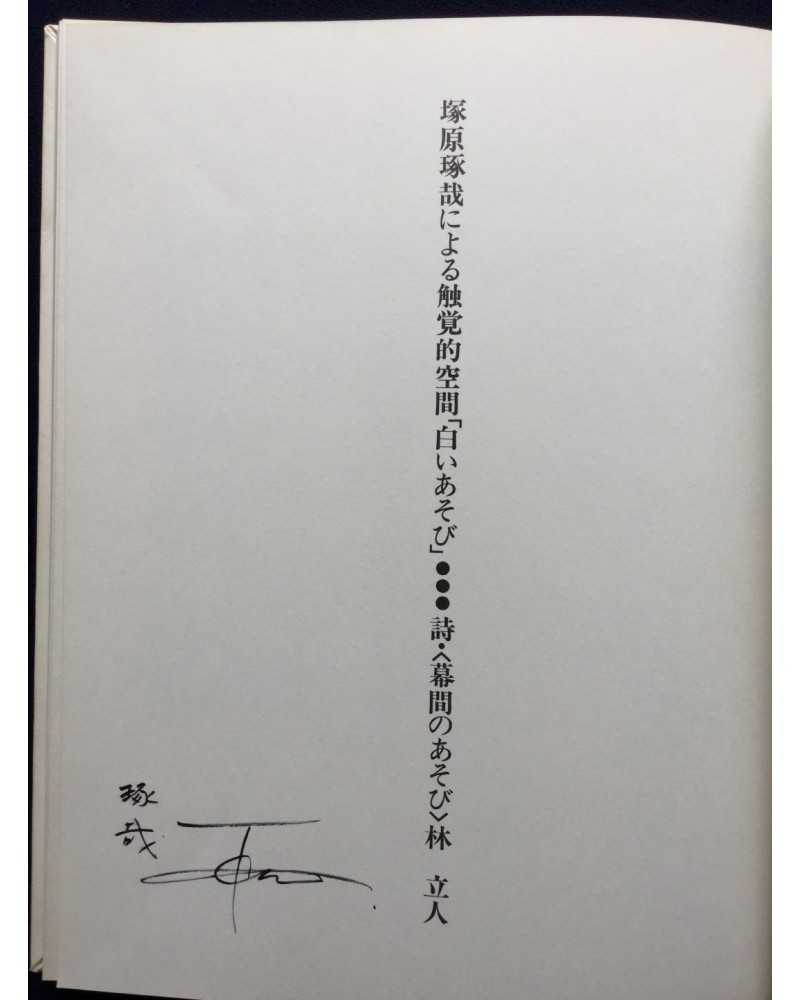 塚原琢哉による触覚的空間「白いあそび」●●●詩・〈幕間のあそび〉林 立人
琢哉